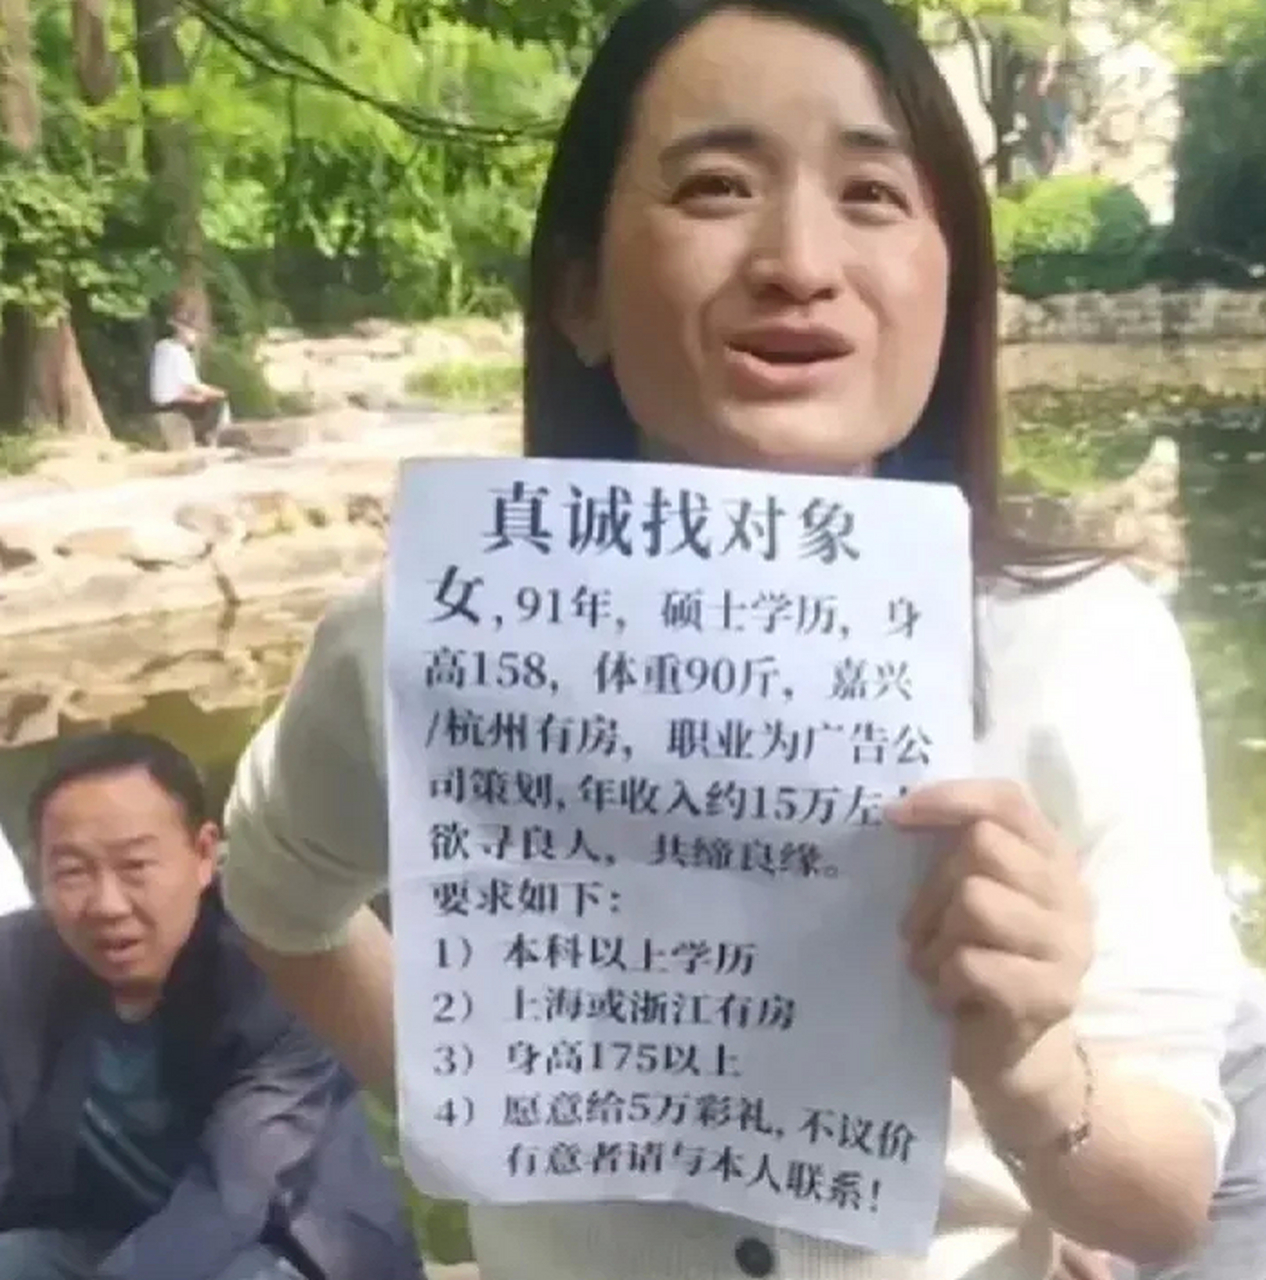 真诚找对象
女,91年，硕士学历，身
高158，体重90斤，嘉兴
/杭州有房，职业为广告公
司策划,年收入约15万左
欲寻良人，共缔良缘。
要求如下：
1）本科以上学历
2）上海或浙江有房
3）身高175以上
4）愿意给5万彩礼,不议价
有意者请与本人联系！